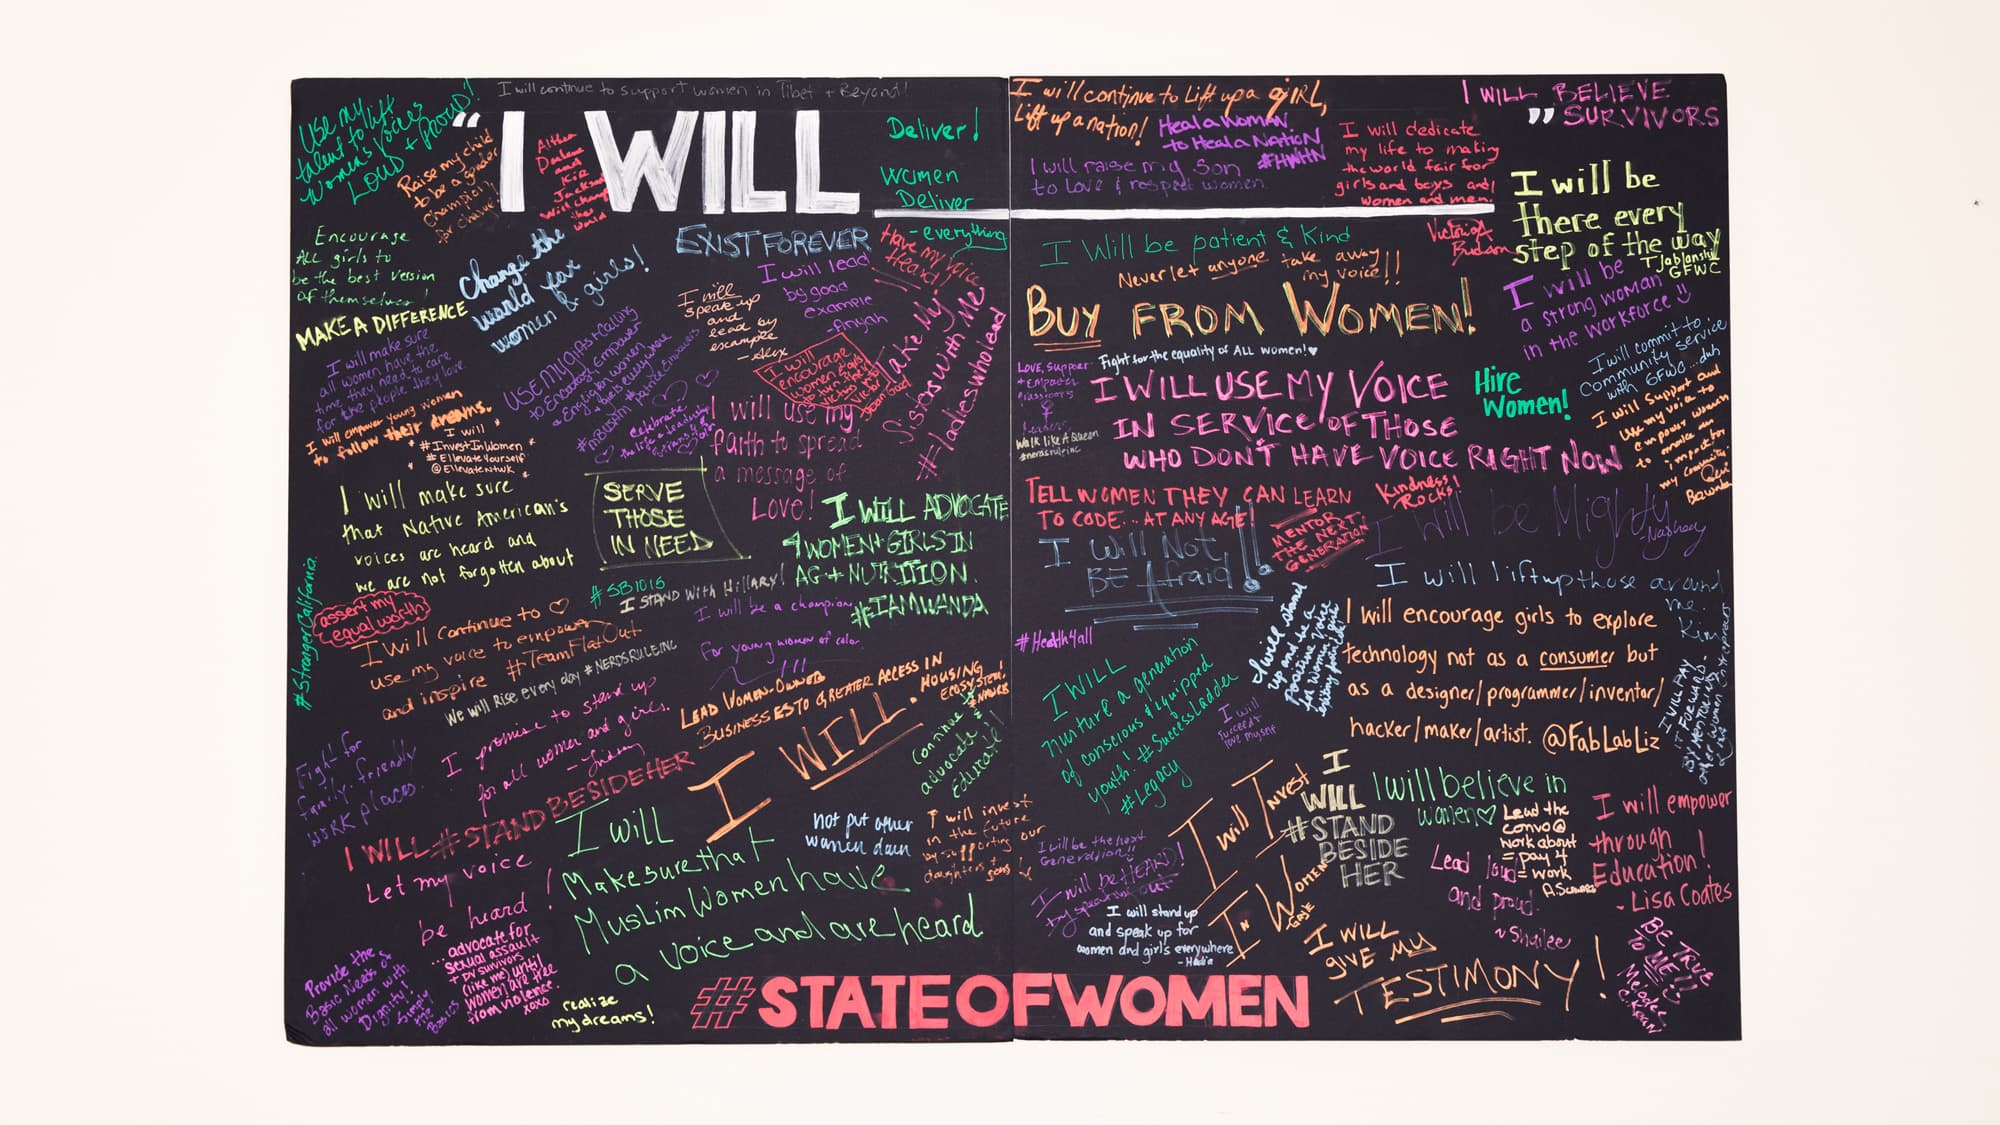 I will continue to support women in Tibet + Beyond!
"I WILL
"
USE My
talent to lift
women's voices
LOUD + prouD!
Raise my child
to be a gender
champion
for change!
Deliver!
Women
Deliver
- everything
Encourage
ALL girls to
be the best version
of themselves!
MAKE A DIFFERENCE
Change the
world for
women & girls!
EXIST FOREVER
Have my voice
Heard
I will lead
by good
example
I will
speak up
and
lead by
example
- Alex
Take My
Sisters with Me
#ladieswholead
I will make sure
all women have the
time they need to care
for the people they love.
I will empower young women
to follow their dreams.
I will
#InvestInWomen
#EllevateYourself
@EllevateNtwk
I will
encourage
women & girls
I will use my
faith to spread
a message of
Love!
I will make sure
that Native American's
voices are heard and
we are not forgotten about
SERVE
THOSE
IN NEED
I WILL ADVOCATE
4 WOMEN + GIRLS IN
AG + NUTRITION.
#IAMWANDA
#StrongerCalifornia.
assert my
equal worth
#SB1015
I STAND WITH HILLARY!
I will be a champion
For young women of color.
I will continue to
use my voice to empower
and inspire #TeamFlatOut
We will Rise every day #NERDSRULEINC
LEAD WOMEN-OWNED
BUSINESSES TO GREATER ACCESS IN
HOUSING
ECOSYSTEM!
I promise to stand up
for all women and girls.
I WILL.
Continue
advocate
Educate!
Fight for
family-friendly
work places.
I WILL #STANDBESIDEHER
Let my voice
be heard!
I will
Make sure that
Muslim Women have
a voice and are heard
not put other
women down
I will invest
in the future
by supporting our
daughters
... advocate for
sexual assault
+ DV survivors
(like me) until
women are free
from violence.
xoxo
Provide the
Basic Needs of
all women with
Dignity!
realize
my dreams!
#STATEOFWOMEN
I will continue to Lift up a GIRL,
Lift up a nation!
Heal a Woman
to Heal a NATION
#HWHN
I will raise my son
to love & respect women.
I will dedicate
my life to making
the world fair for
girls and boys and
women and men.
I WILL BELIEVE
SURVIVORS
I will be
There every
step of the way
T Jablonski
GFWC
I will be patient & Kind
Never let anyone take away
my voice!!
BUY FROM WOMEN!
I will be
a strong woman
in the workforce
Fight for the equality of ALL women!
LOVE, Support
+ Empower
Walk like A Queen
#nerdsruleinc
I WILL USE MY VOICE
IN SERVICE OF THOSE
WHO DON'T HAVE VOICE RIGHT NOW
Hire
Women!
I will commit to
community service
with GFWC
I will support and
use my voice to
empower women
to make an
impact for
my community
TELL WOMEN THEY CAN LEARN
TO CODE... AT ANY AGE!
Kindness
Rocks!
MENTOR
THE NEXT
GENERATION
I will be Mighty
I Will Not
BE Afraid!!
I will lift up those around
me.
Kim
#Health4all
I will stand
up and be a
positive voice
for women
I will encourage girls to explore
technology not as a consumer but
as a designer/programmer/inventor/
hacker/maker/artist. @FabLabLiz
I WILL PAY
IT FORWARD
BY MENTORING
I WILL
nurture a generation
of conscious & equipped
youth! #SuccessLadder
#Legacy
I will
succeed
love myself
I will Invest
In Women
Gayle
I
WILL
#STAND
BESIDE
HER
I will believe in
women
Lead the
convo @
work about
= pay 4
= work
Lead loud
and proud.
I will empower
through
Education!
- Lisa Coates
I will be the
Generation!!
I will be HEARD!
I will stand up
and speak up for
women and girls everywhere
I WILL
GIVE MY
TESTIMONY!
BE TRUE
TO ME!!